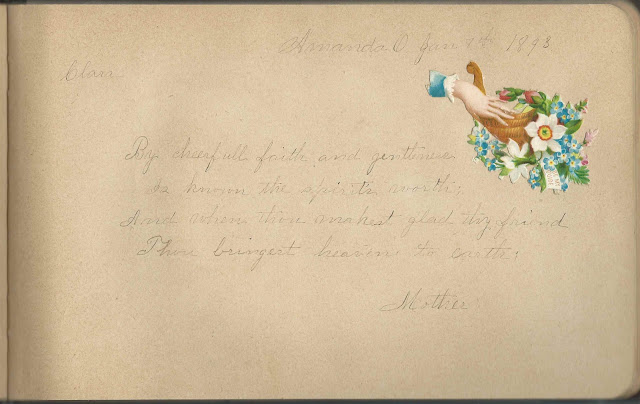 Amanda O Jan 9th 1893
Clara
By cheerfull faith and gentleness
Is known the spirits worth;
And when thou makest glad thy friend
Thou bringest heaven to earth;
Mother